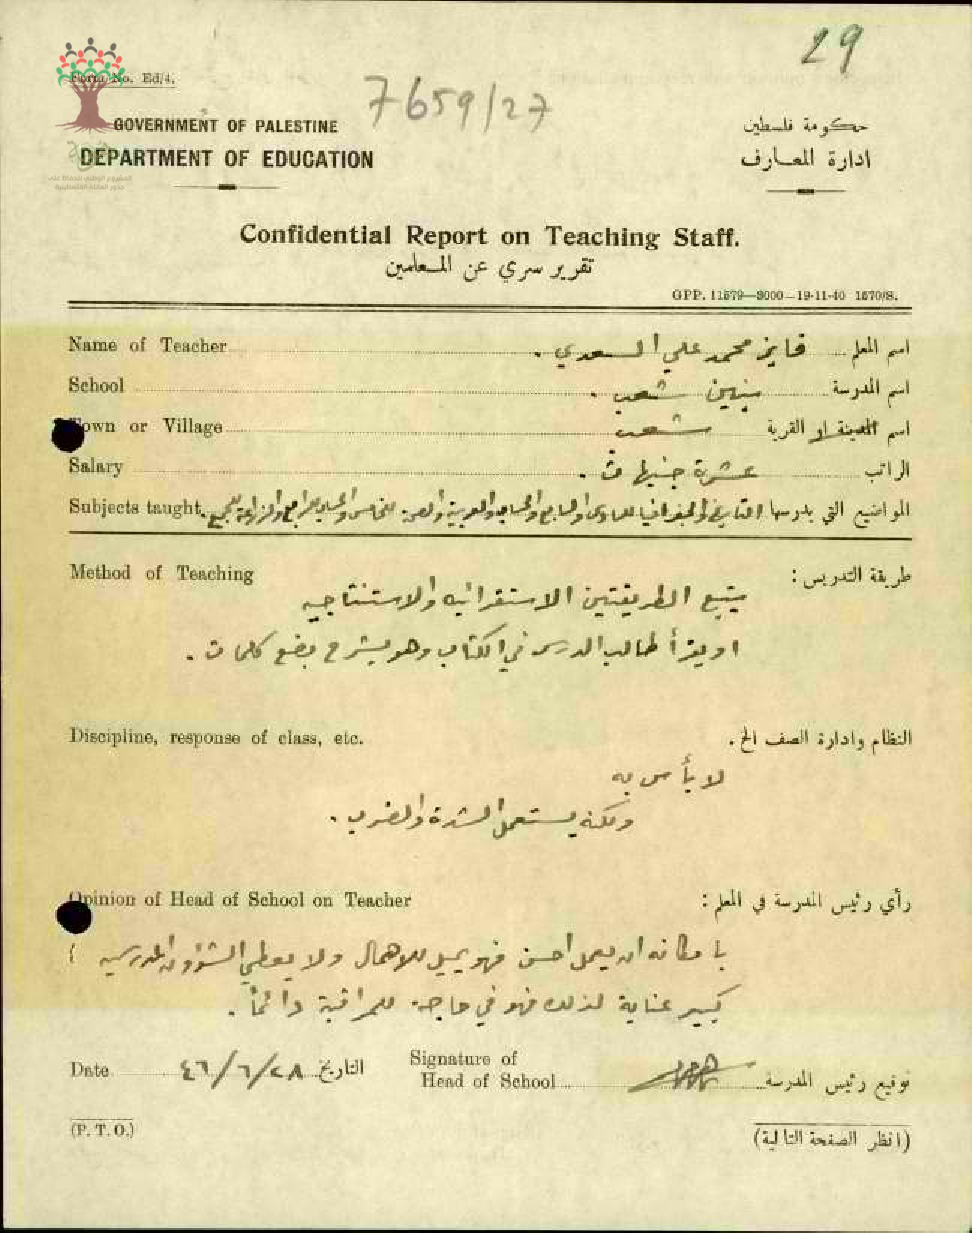 29
Form No. Ed/4.
7659/27
GOVERNMENT OF PALESTINE
حكومة فلسطين
DEPARTMENT OF EDUCATION
ادارة المعارف
المشروع الوطني للحفاظ على
جذور العائلة الفلسطينية
Confidential Report on Teaching Staff.
تقرير سري عن المعلمين
GPP. 11579—3000—19-11-40 1570/S.
Name of Teacher فايز محمد علي السعدي . اسم المعلم
School بنين شعب . اسم المدرسة
Town or Village شعب اسم المدينة او القرية
Salary عشرة جنيهات . الراتب
Subjects taught. المواضيع التي يدرسها التاريخ والجغرافيا للسادس والسابع والحساب والعربية والصحة للخامس
Method of Teaching طريقة التدريس :
يتبع الطريقتين الاستقرائيه والاستنتاجيه
او يقرأ طالب الدرس في الكتاب وهو يشرح بضع كلمات .
Discipline, response of class, etc. النظام وادارة الصف الخ .
لا بأس به
ولكنه يستعمل الشدة والضرب .
Opinion of Head of School on Teacher رأي رئيس المدرسة في المعلم :
بامكانه ان يعمل احسن فهو يميل للاهمال ولا يعطي الشؤون المدرسيه
كبير عناية لذلك فهو في حاجة للمراقبة دائماً .
Date ٤٦/٦/٢٨ التاريخ
Signature of
Head of School توقيع رئيس المدرسة
(P. T. O.) (انظر الصفحة التالية)